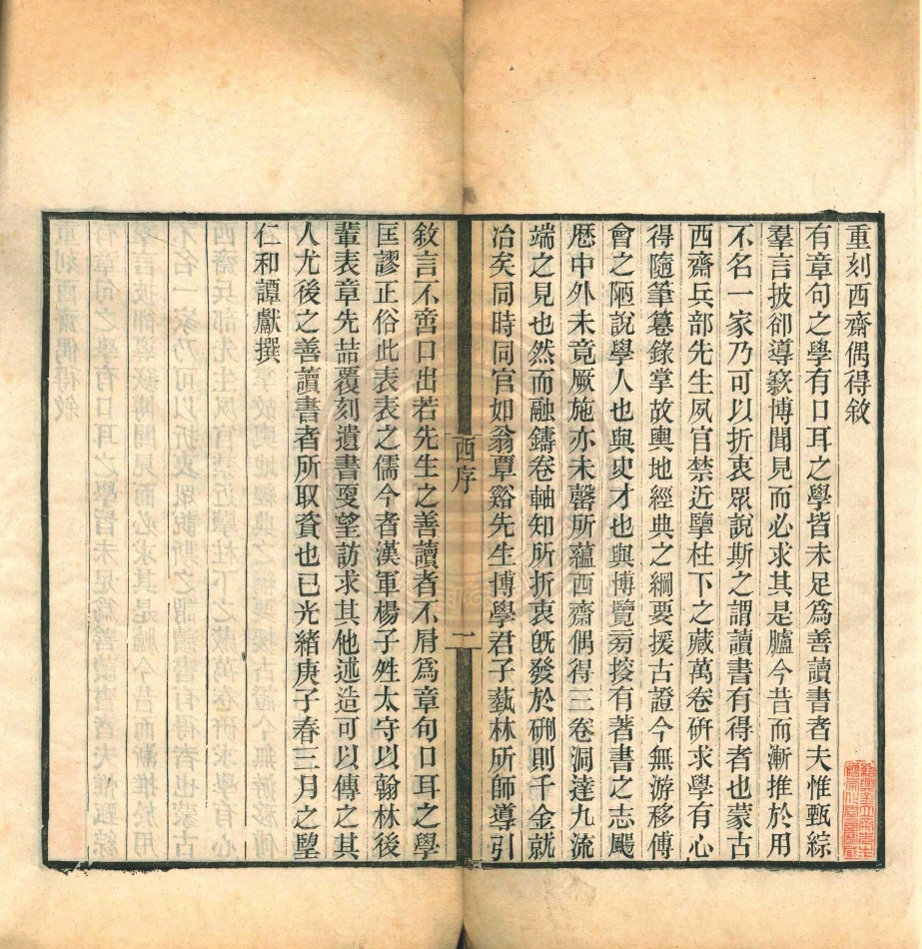 重刻西齋偶得敘
有章句之學有口耳之學皆未足爲善讀書者夫惟甄綜
羣言披卻導窾博聞見而必求其是臚今昔而漸推於用
不名一家乃可以折衷眾說斯之謂讀書有得者也蒙古
西齋兵部先生夙官禁近擥柱下之藏萬卷硏求學有心
得隨筆篹錄掌故輿地經典之綱要援古證今無游移傅
會之陋說學人也與史才也與博覽㫄挍有著書之志颺
歷中外未竟厥施亦未罄所蘊西齋偶得三卷洞達九流
端之見也然而融鑄卷軸知所折衷旣發於硎則千金就
冶矣同時同官如翁覃谿先生博學君子藝林所師導引
西序
一
敘言不啻口出若先生之善讀者不屑爲章句口耳之學
匡謬正俗此表表之儒今者漢軍楊子姓太守以翰林後
輩表章先喆覆刻遺書叓望訪求其他述造可以傳之其
人尤後之善讀書者所取資也已光緒庚子春三月之朢
仁和譚獻撰